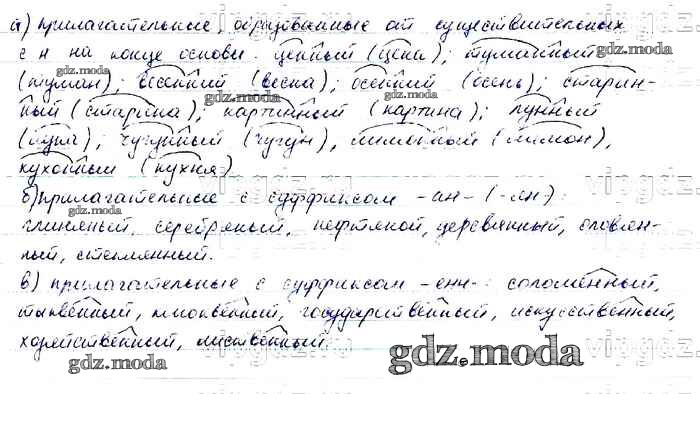 а) прилагательные, образованные от существительных
с н на конце основы: ценный (цена); туманный
(туман); весенний (весна); осенний (осень); старин-
ный (старина), картинный (картина); лунный
(луна); чугунный (чугун), лимонный (лимон),
кухонный (кухня)
б) прилагательные с суффиксом -ан- (-ян-):
глиняный, серебряный, нефтяной, деревянный, оловян-
ный, стеклянный.
в) прилагательные с суффиксом -енн-: соломенный,
тыквенный, клюквенный, государственный, искусственный,
хозяйственный, лиственный.
gdz.moda
gdz.moda
gdz.moda
gdz.moda
gdz.moda
gdz.moda
gdz.moda
vipgdz.ru